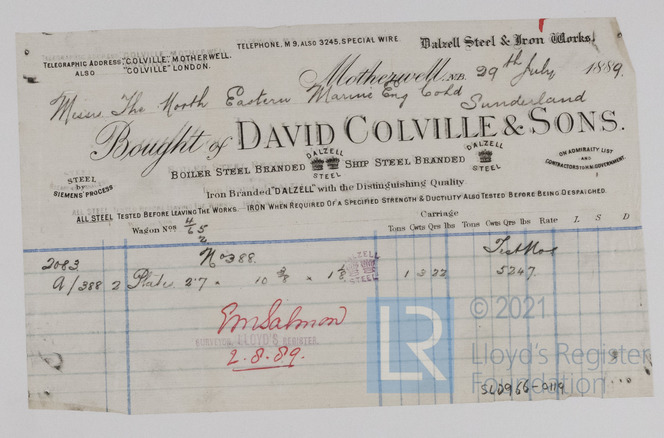 TELEPHONE, M 9, ALSO 3245, SPECIAL WIRE.
Dalzell Steel & Iron Works,
TELEGRAPHIC ADDRESS, "COLVILLE", MOTHERWELL.
ALSO "COLVILLE" LONDON.
Motherwell, N.B. 29th July 1889.
Messrs The North Eastern Marine Eng Co Ld Sunderland
Bought of DAVID COLVILLE & SONS.
BOILER STEEL BRANDED DALZELL STEEL SHIP STEEL BRANDED DALZELL STEEL
STEEL by SIEMENS' PROCESS
ON ADMIRALITY LIST AND CONTRACTORS TO H.M. GOVERNMENT.
Iron Branded "DALZELL" with the Distinguishing Quality
ALL STEEL TESTED BEFORE LEAVING THE WORKS. IRON WHEN REQUIRED OF A SPECIFIED STRENGTH & DUCTILITY ALSO TESTED BEFORE BEING DESPATCHED.
Wagon Nos
Carriage
Tons Cwts Qrs lbs Tons Cwts Qrs lbs Rate £ S D
No 388. Test Nos
2083
A/388 2 Plates 2.7 × 10 3/8 × 1 1/8 DALZELL STEEL 1 3 22 5247.
EM Salmon
SURVEYOR, LLOYD'S REGISTER.
2.8.89.
LR © 2021
Lloyd's Register
Foundation
SLD966-0119